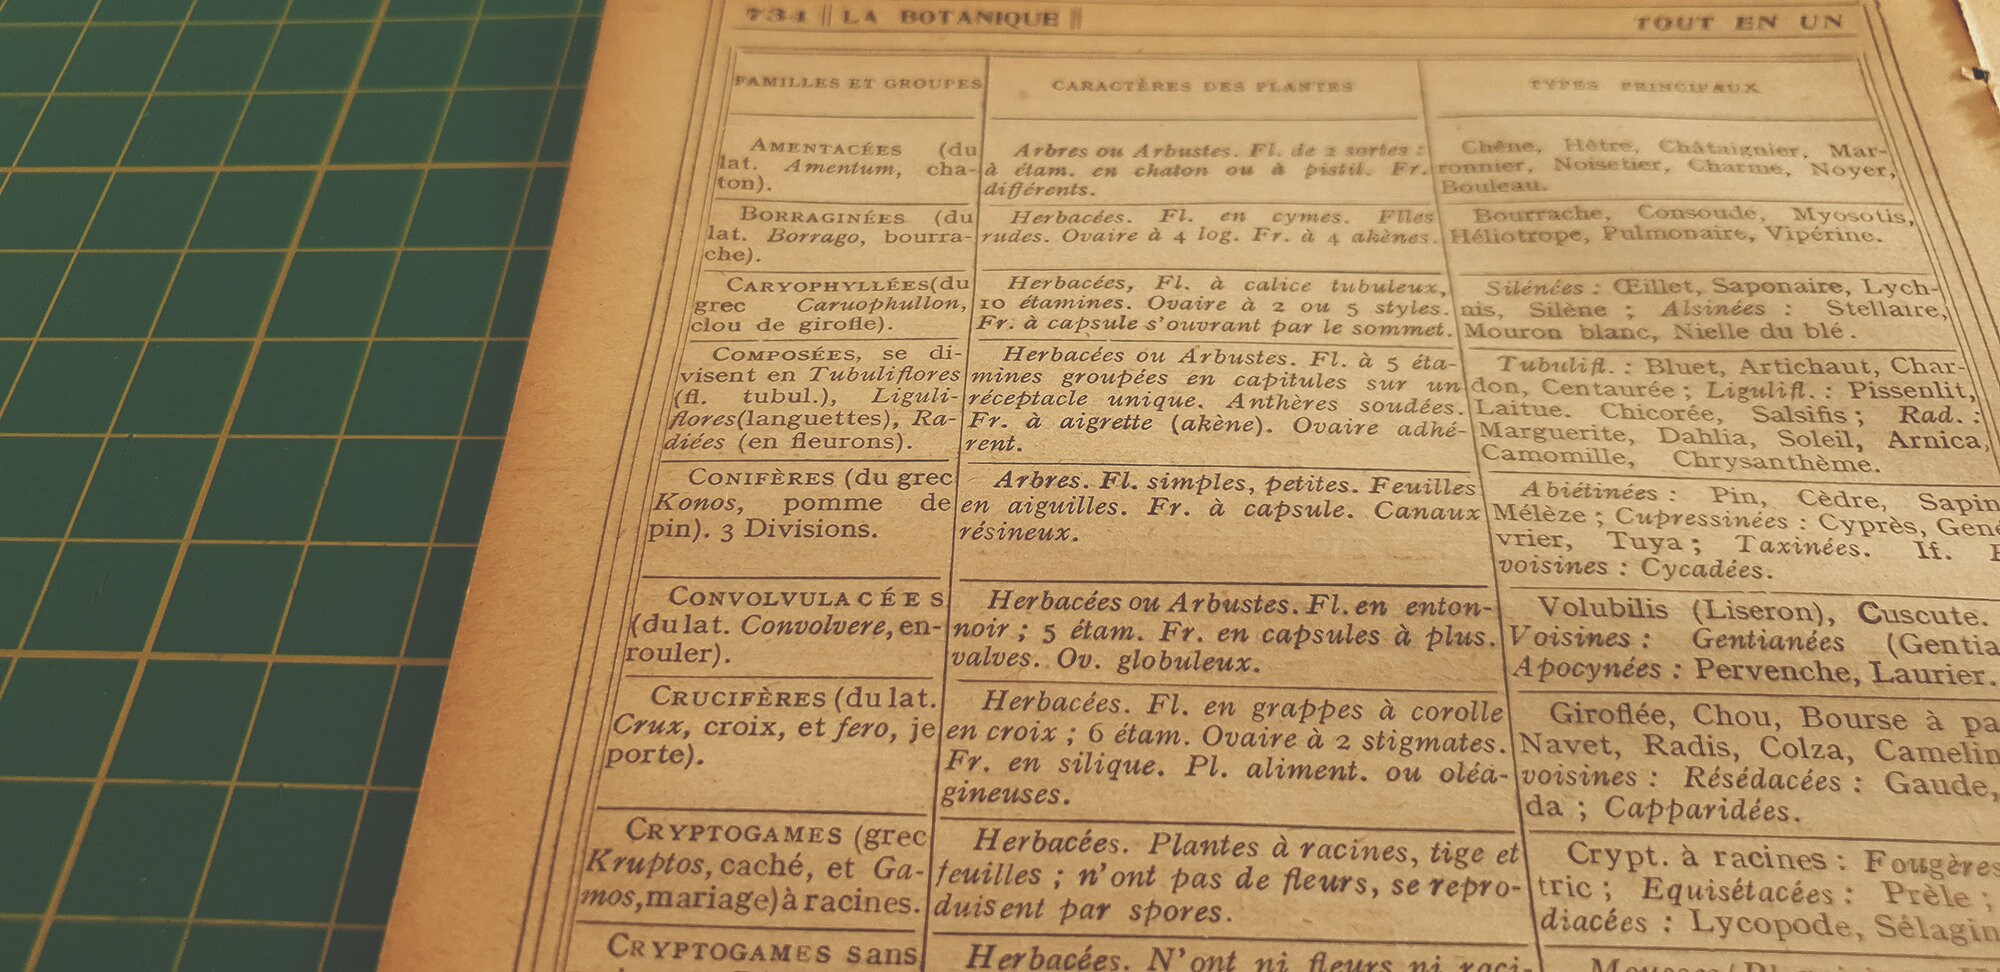 734 || LA BOTANIQUE ||
TOUT EN UN
FAMILLES ET GROUPES
CARACTÈRES DES PLANTES
TYPES PRINCIPAUX
AMENTACÉES (du
lat. Amentum, cha-
ton).
Arbres ou Arbustes. Fl. de 2 sortes :
à étam. en chaton ou à pistil. Fr.
différents.
Chêne, Hêtre, Châtaignier, Mar-
ronnier, Noisetier, Charme, Noyer,
Bouleau.
BORRAGINÉES (du
lat. Borrago, bourra-
che).
Herbacées. Fl. en cymes. Flles
rudes. Ovaire à 4 log. Fr. à 4 akènes.
Bourrache, Consoude, Myosotis,
Héliotrope, Pulmonaire, Vipérine.
CARYOPHYLLÉES(du
grec Caruophullon,
clou de girofle).
Herbacées, Fl. à calice tubuleux,
10 étamines. Ovaire à 2 ou 5 styles.
Fr. à capsule s'ouvrant par le sommet.
Silénées : Œillet, Saponaire, Lych-
nis, Silène ; Alsinées : Stellaire,
Mouron blanc, Nielle du blé.
COMPOSÉES, se di-
visent en Tubuliflores
(fl. tubul.), Liguli-
flores(languettes), Ra-
diées (en fleurons).
Herbacées ou Arbustes. Fl. à 5 éta-
mines groupées en capitules sur un
réceptacle unique. Anthères soudées.
Fr. à aigrette (akène). Ovaire adhé-
rent.
Tubulifl. : Bluet, Artichaut, Char-
don, Centaurée ; Ligulifl. : Pissenlit,
Laitue. Chicorée, Salsifis ; Rad. :
Marguerite, Dahlia, Soleil, Arnica,
Camomille, Chrysanthème.
CONIFÈRES (du grec
Konos, pomme de
pin). 3 Divisions.
Arbres. Fl. simples, petites. Feuilles
en aiguilles. Fr. à capsule. Canaux
résineux.
Abiétinées : Pin, Cèdre, Sapin
Mélèze ; Cupressinées : Cyprès, Gené
vrier, Tuya ; Taxinées. If.
voisines : Cycadées.
CONVOLVULACÉES
(du lat. Convolvere, en-
rouler).
Herbacées ou Arbustes. Fl. en enton-
noir ; 5 étam. Fr. en capsules à plus.
valves. Ov. globuleux.
Volubilis (Liseron), Cuscute.
Voisines : Gentianées (Gentia
Apocynées : Pervenche, Laurier.
CRUCIFÈRES (du lat.
Crux, croix, et fero, je
porte).
Herbacées. Fl. en grappes à corolle
en croix ; 6 étam. Ovaire à 2 stigmates.
Fr. en silique. Pl. aliment. ou oléa-
gineuses.
Giroflée, Chou, Bourse à pa
Navet, Radis, Colza, Camelin
voisines : Résédacées : Gaude,
da ; Capparidées.
CRYPTOGAMES (grec
Kruptos, caché, et Ga-
mos, mariage) à racines.
Herbacées. Plantes à racines, tige et
feuilles ; n'ont pas de fleurs, se repro-
duisent par spores.
Crypt. à racines : Fougères
tric ; Equisétacées : Prèle ;
diacées : Lycopode, Sélagin
CRYPTOGAMES sans
Herbacées. N'ont ni fleurs ni raci-